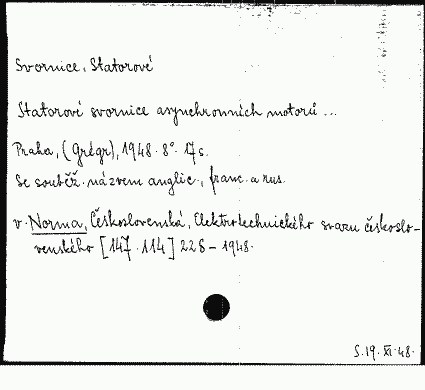 Svornice, Statorové
Statorové svornice asynchronních motorů ...
Praha, (Grégr), 1948. 8°. 17 s.
Se souběž. názvem anglic., franc. a rus.
v. Norma, Československá, Elektrotechnického svazu českoslo-
venského [147.114] 228 - 1948.
S. 19. XI. 48.